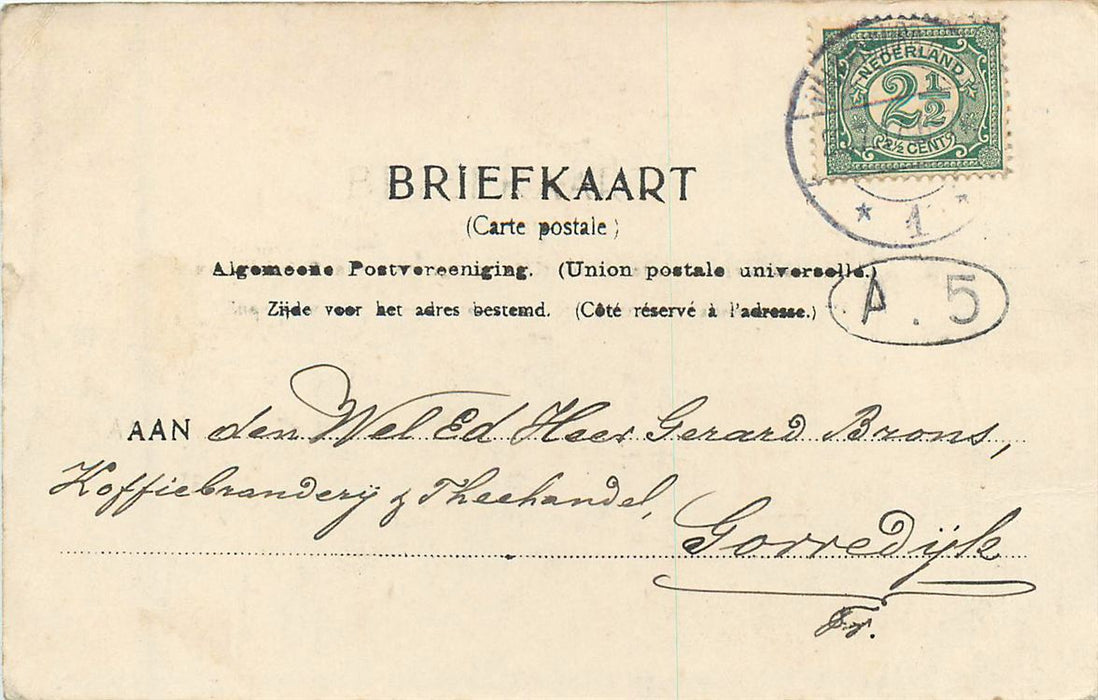 NEDERLAND
2½
2½ CENT
1
BRIEFKAART
(Carte postale)
Algemeene Postvereeniging. (Union postale universelle.)
Zijde voor het adres bestemd. (Côté réservé à l'adresse.)
A. 5
AAN den Wel Ed Heer Gerard Brons,
Koffiebranderij & Theehandel,
Gorredijk
Fr.